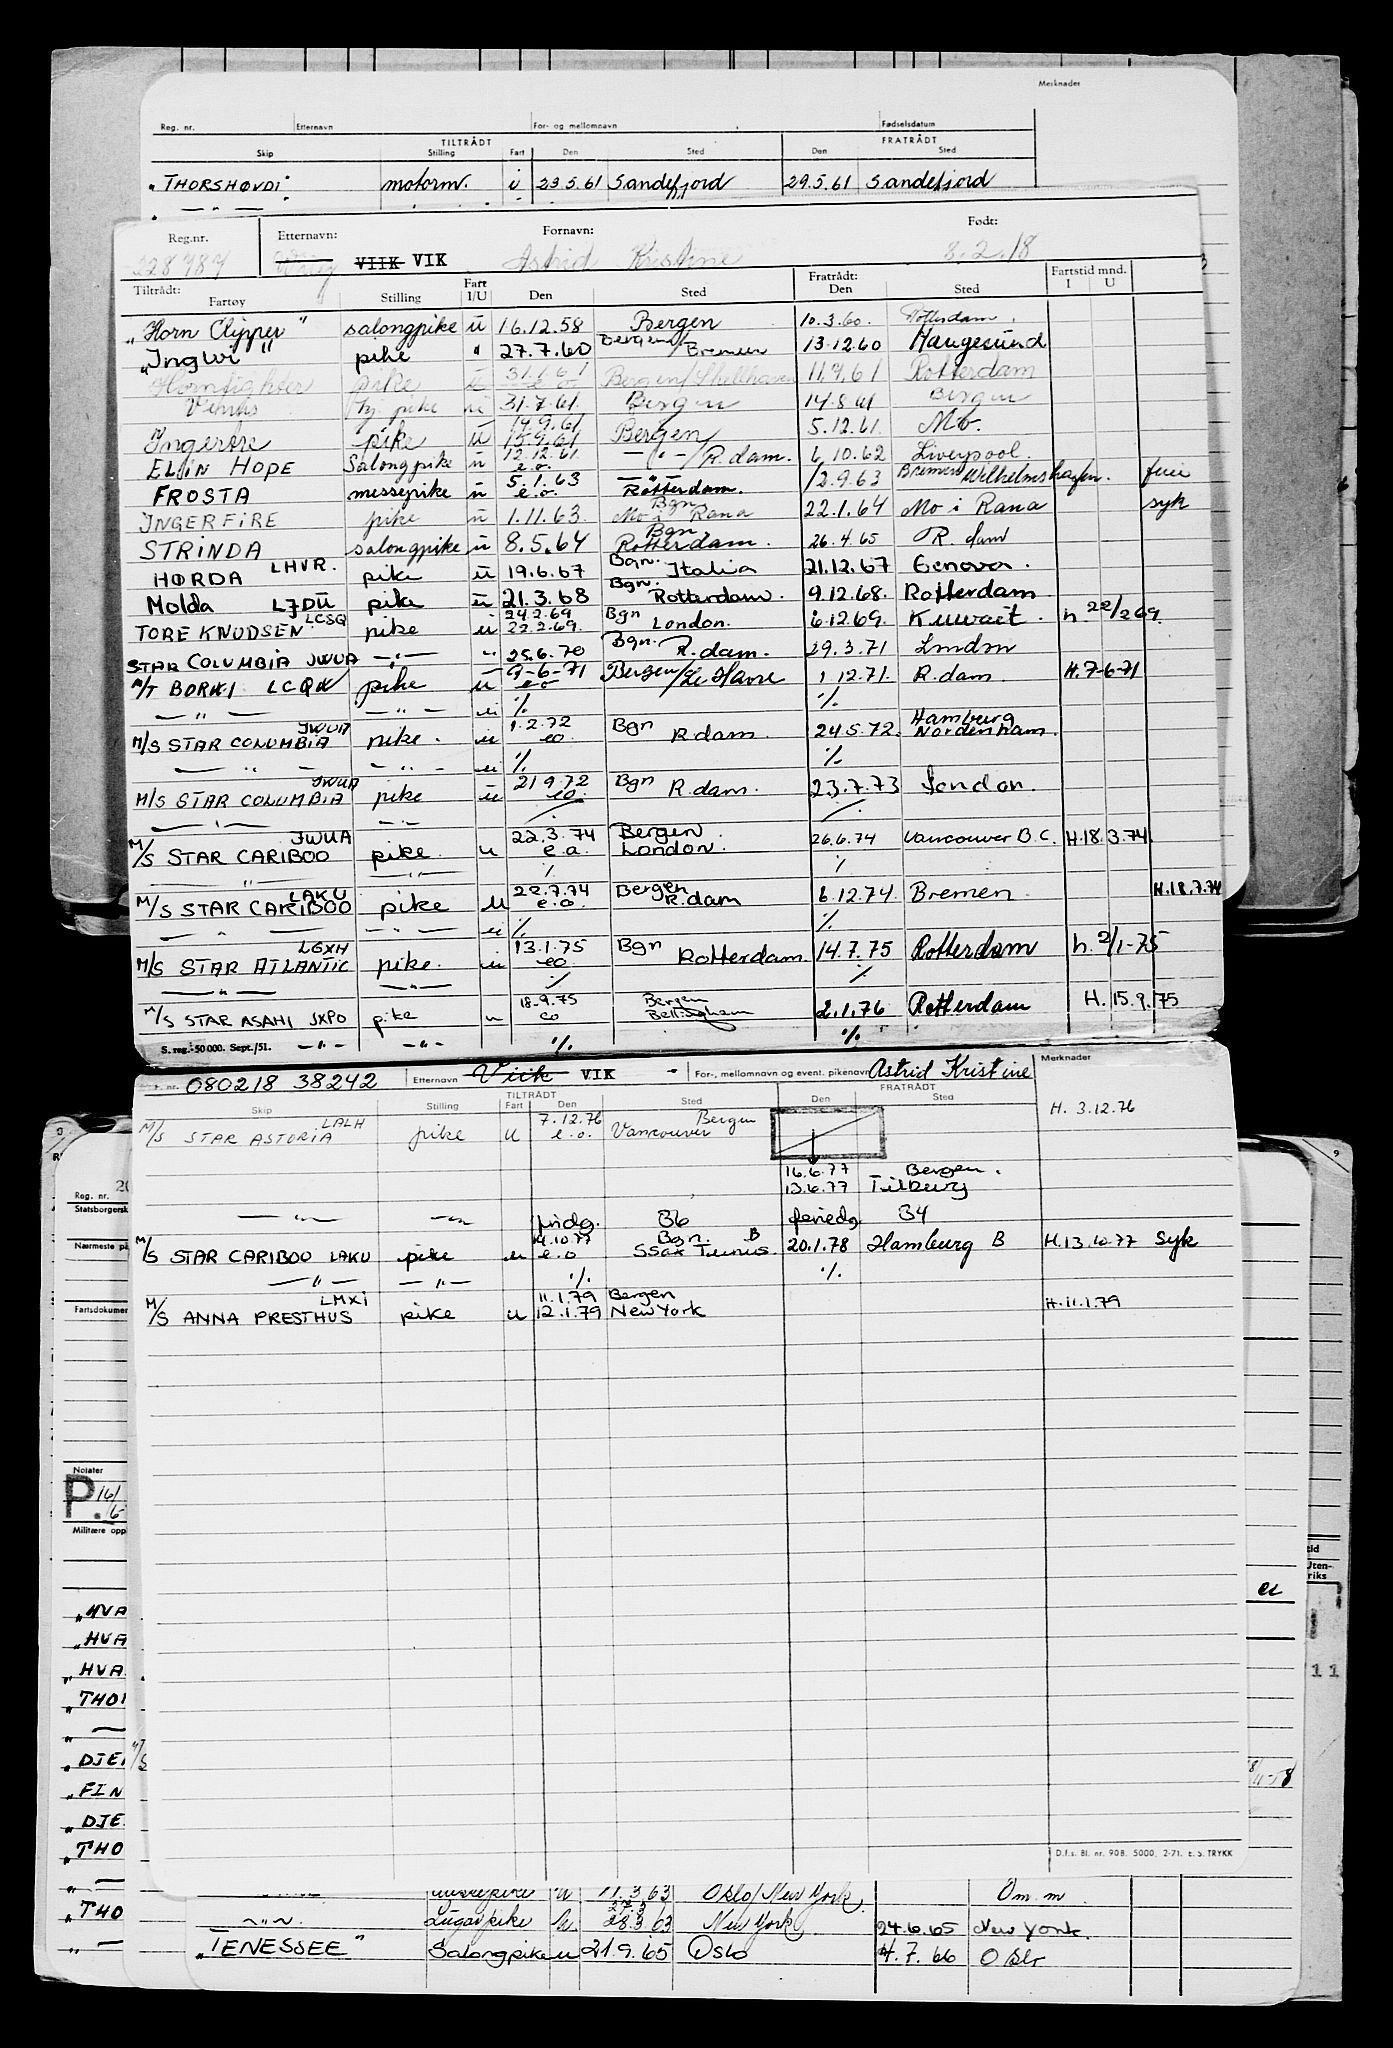 Merknader
Reg. nr. Etternavn For- og mellomnavn Fødselsdatum
TILTRÅDT FRATRÅDT
Skip Stilling Fart Den Sted Den Sted
"THORSHØVDI" motorm. i 23.5.61 Sandefjord 29.5.61 Sandefjord
Reg.nr. Etternavn: Fornavn: Født:
228787 VIIK VIK Astrid Kristine 8.2.18
Tiltrådt: Fratrådt: Fartstid mnd.
Fartøy Stilling Fart I/U Den Sted Den Sted I U
"Horn Clipper" salongpike u 16.12.58 Bergen 10.3.60. Rotterdam.
"Ingwi" pike " 27.7.60 Bergen/Bremen 13.12.60 Haugesund
Hornfighter pike u 31.1.61 e.o. Bergen/Shellhaven 11.7.61 Rotterdam
Venus pike u 31.7.61. Bergen 14.8.61 Bergen
14.9.61
Ingertre pike u 15.9.61 Bergen 5.12.61. Mo.
12.12.61.
ELIN HOPE Salongpike u e.o. - " - /R.dam. 6.10.62 Liverpool.
5.1.63
FROSTA messepike u e.o. Rotterdam. 12.9.63 Bremen Wilhelmshafen. ferie
Bgn
INGERFIRE pike u 1.11.63. Mo i Rana 22.1.64 Mo i Rana syk
Bgn.
STRINDA salongpike u 8.5.64 Rotterdam. 26.4.65 R.dam
HØRDA LHVR. pike u 19.6.67 Bgn. Italia 21.12.67 Genova.
Molda LJDU pike u 21.3.68 Bgn. Rotterdam. 9.12.68. Rotterdam.
LCSQ 24.2.69
TORE KNUDSEN pike u 22.2.69. Bgn London. 6.12.69. Kuwait. h. 22/2 69.
STAR COLUMBIA JWUA - " - " 25.6.70 Bgn. R.dam. 29.3.71 London
9-6-71
M/T BORKI LCQK pike u eo Bergen/Le Havre 1.12.71. R.dam. H.7-6-71
- " - - " - u % %
JWUA 1.2.72 Hamburg
M/S STAR COLUMBIA pike. u eo. Bgn R.dam. 24.5.72. Nordenham.
- " - - " - u % %
JWUA 21.9.72
M/S STAR COLUMBIA pike u eo. Bgn R.dam. 23.7.73 London.
- " - - " - % %
JWUA 22.3.74 Bergen
M/S STAR CARIBOO pike. u e.o. London. 26.6.74 Vancouver B.C. H.18.3.74.
- " - - " - % %
LAKU 22.7.74 Bergen
M/S STAR CARIBOO pike u e.o. R.dam 6.12.74. Bremen. H.18.7.74
- " - - " - u % %
LGXH 13.1.75
M/S STAR ATLANTIC pike. u eo Bgn Rotterdam. 14.7.75 Rotterdam h. 2/1-75
- " - - " - % %
18.9.75 Bergen
M/S STAR ASAHI JXPO pike u eo Bellingham 2.1.76 Rotterdam H. 15.9.75
S. reg.-50 000. Sept./51. - " - - " - % %
F. nr. 080218 38242 Etternavn Viik VIK - For-, mellomnavn og event. pikenavn Astrid Kristine Merknader
TILTRÅDT FRATRÅDT
Skip Stilling Fart Den Sted Den Sted
LALH 7.12.76 Bergen H. 3.12.76
M/S STAR ASTORIA pike u e.o. Vancouver
16.6.77 Bergen.
13.6.77 Tilbury
- " - - " - B6 feriedg. B4
4.10.77 Bgn. B
M/S STAR CARIBOO LAKU pike u e.o Ssax Tunis. 20.1.78 Hamburg B H.13.10.77 Syk
- " - - " - % %
LMXI 11.1.79 Bergen
M/S ANNA PRESTHUS pike u 12.1.79 New York H.11.1.79
D.f.s. Bl. nr. 908. 5000. 2-71. E. S. TRYKK
Reg. nr.
Statsborgersk
Nærmeste på
Fartsdokumen
Notater
P.
Militære oppl
"HVA
"HVA
"HVA
"THO
"DJE
"FIN
"DJE
"THO
"THO
11
9
9
u 11.3.63 Oslo/New York Om.m.
27.3
- " - Lugarpike u. 28.3.63 New York 24.6.65 New York.
"TENESSEE" Salongpike u 21.9.65 Oslo 4.7.66 Oslo